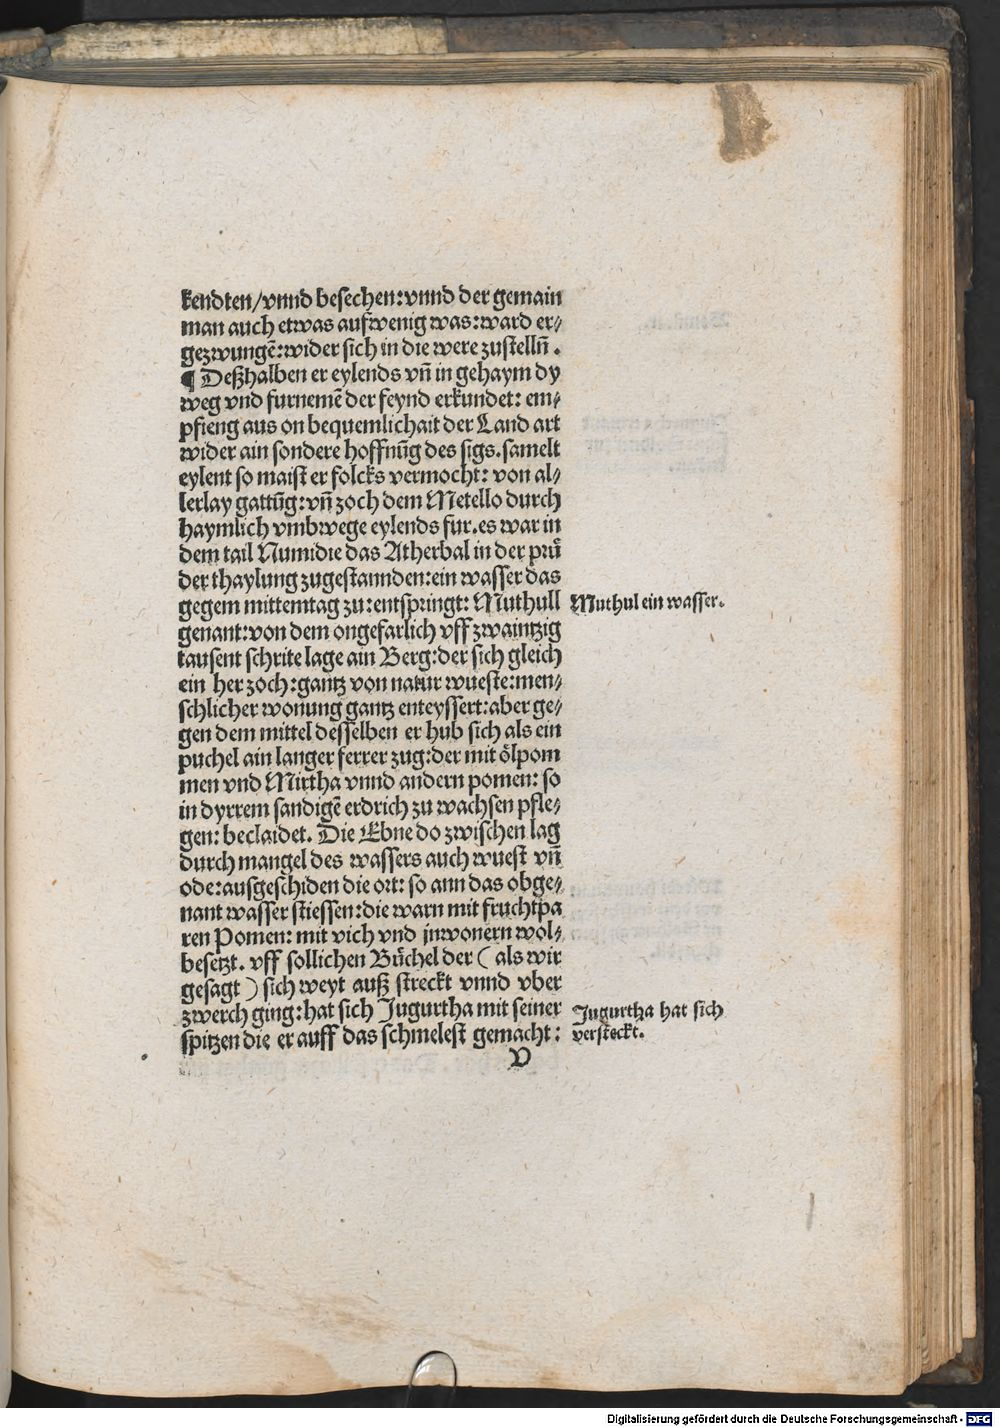 kendten/vnnd besechen:vnnd der gemain
man auch etwas aufwenig was:ward er⸗
gezwungē:wider sich in die were zustelln̄.
¶ Deßhalben er eylends vn̄ in gehaym dy
weg vnd furnemē der feynd erkundet: em⸗
pfieng aus on bequemlichait der Land art
wider ain sondere hoffnūg des sigs.samelt
eylent so maist er folcks vermocht: von al⸗
lerlay gattūg:vn̄ zoch dem Metello durch
haymlich vmbwege eylends fur.es war in
dem tail Numidie das Atherbal in der prů
der thaylung zugestannden:ein wasser das
gegem mittemtag zu:entspringt: Muthull
Muthul ein wasser.
genant:von dem ongefarlich vff zwaintzig
tausent schrite lage ain Berg:der sich gleich
ein her zoch:gantz von natur wueste:men⸗
schlicher wonung gantz enteyssert:aber ge⸗
gen dem mittel desselben er hub sich als ein
puchel ain langer ferrer zug:der mit ölpom
men vnd Mirtha vnnd andern pomen: so
in dyrrem sandigē erdrich zu wachsen pfle⸗
gen: beclaidet. Die Ebne do zwischen lag
durch mangel des wassers auch wuest vn̄
ode:ausgeschiden die ort: so ann das obge⸗
nant wasser stiessen:die warn mit fruchtpa
ren Pomen: mit vich vnd jnwonern wol⸗
besetzt. vff sollichen Büchel der ( als wir
gesagt ) sich weyt auß streckt vnnd vber
zwerch ging:hat sich Jugurtha mit seiner
Jugurtha hat sich
spitzen die er auff das schmelest gemacht:
versteckt.
V
Digitalisierung gefördert durch die Deutsche Forschungsgemeinschaft - DFG